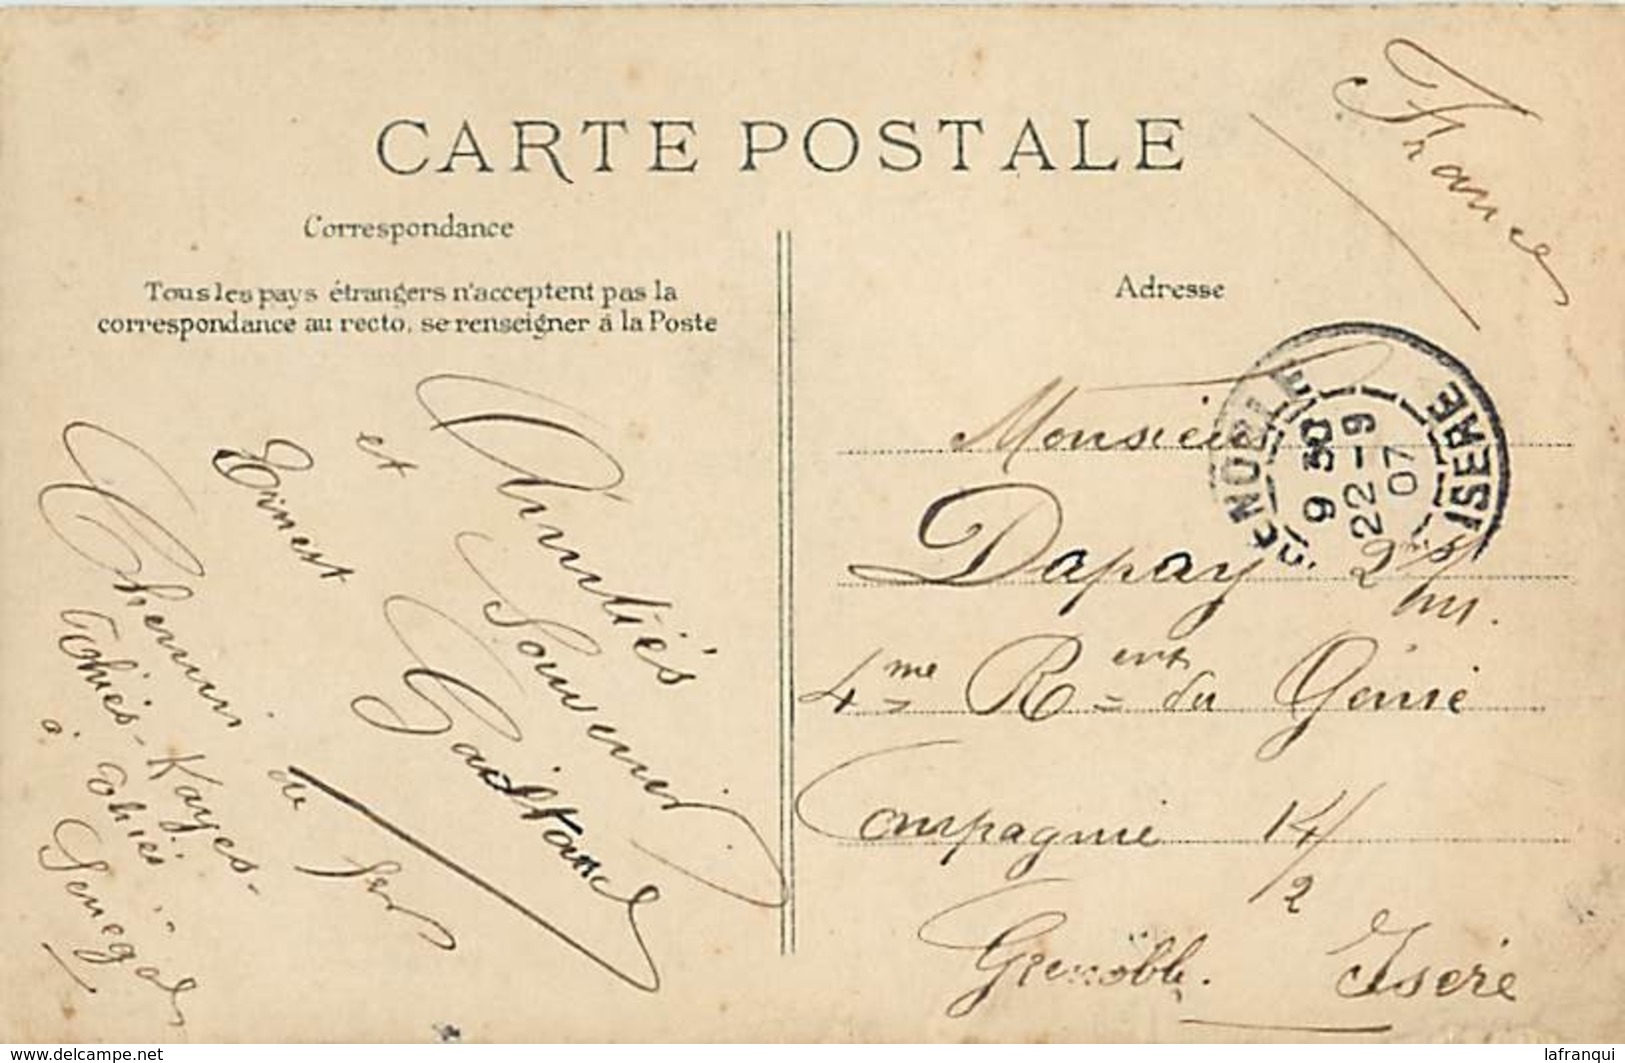 CARTE POSTALE
France
Correspondance
Tous les pays étrangers n'acceptent pas la
correspondance au recto, se renseigner à la Poste
Amitiés
et Souvenir
Ernest
Chemin de fer
Thiès-Kayes-
à Thiès
Sénégal
Adresse
Monsieur
Dapay 2me
4me Rent du Génie
Compagnie 14/2
Grenoble. Isère
GRENOBLE
9 30
22-9
07
ISERE
www.delcampe.net
lafranqui